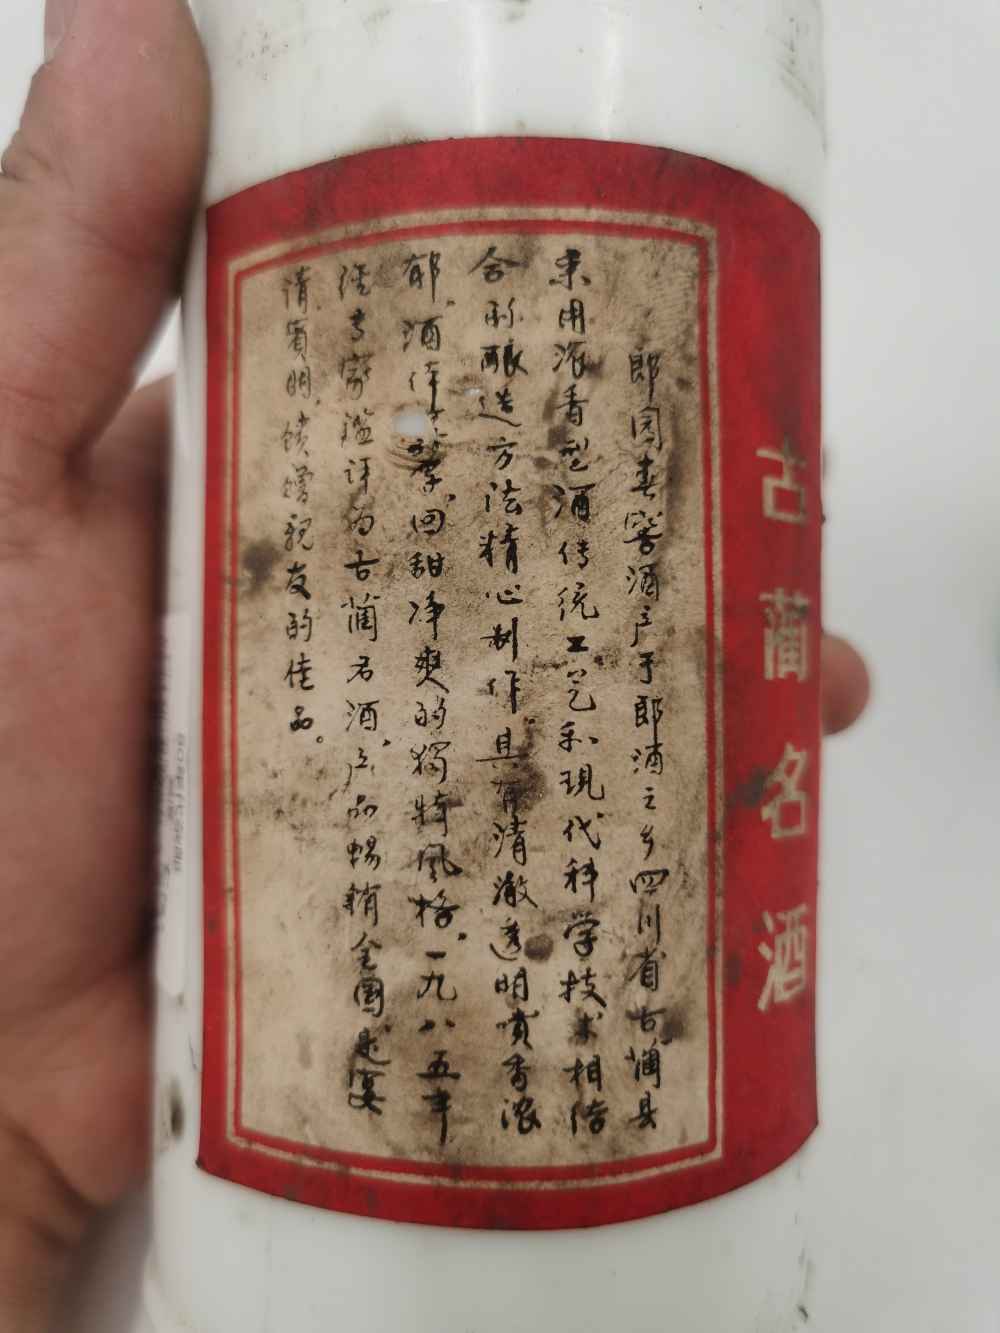 古蔺名酒
郎园春窖酒产于郎酒之乡四川省古蔺县
采用浓香型酒传统工艺和现代科学技术相结
合的酿造方法精心制作。具有清澈透明喷香浓
郁，酒体 回甜净爽的獨特風格。一九八五年
经专家鑑评为古蔺名酒，产品暢銷全國是宴
请賓朋，馈赠親友的佳品。